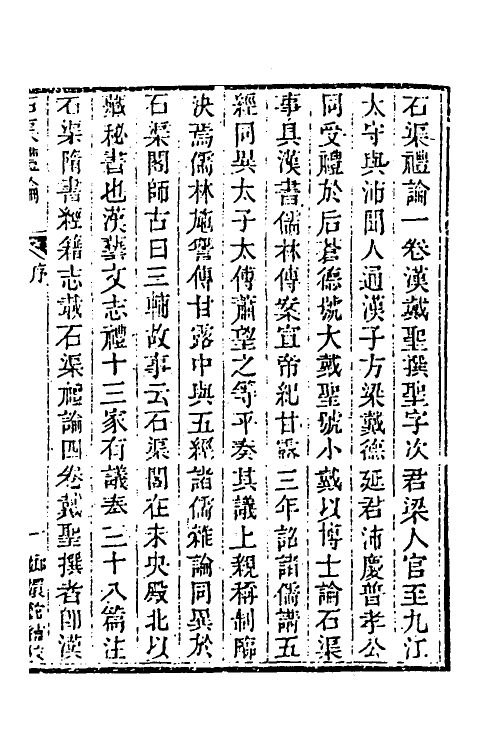 石渠禮論一卷漢戴聖撰聖字次君梁人官至九江
太守與沛聞人通漢子方梁戴德延君沛慶普孝公
同受禮於后蒼德號大戴聖號小戴以博士論石渠
事具漢書儒林傳案宣帝紀甘露三年詔諸儒講五
經同異太子太傅蕭望之等平奏其議上親稱制臨
決焉儒林施讐傳甘露中與五經諸儒雜論同異於
石渠閣師古曰三輔故事云石渠閣在未央殿北以
藏秘書也漢藝文志禮十三家有議奏三十八篇注
石渠隋書經籍志載石渠禮論四卷戴聖撰者即漢
石渠禮論 序 一